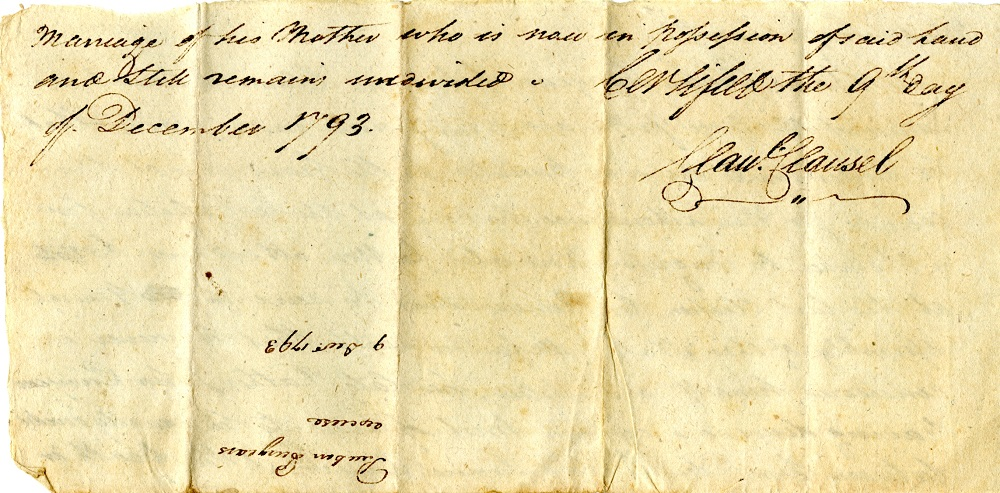 Marriage of his Mother who is now in Possession of said land
and Still remains undivided. Certified the 9th day
of December 1793.
Claud. Clausel
Reuben
9 Decr 1793